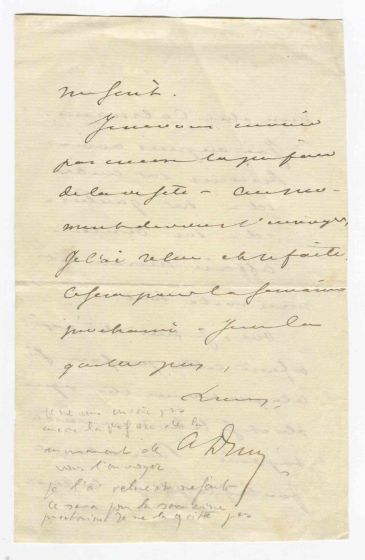 Je ne vous envoie
pas encore la préface
de la
ment de vous l'envoyer,
Je l'ai relue et refaite.
Ce sera pour la semaine
prochaine. Je ne la
quitte pas,
je ne vous envoie pas
encore la préface de la
au moment de
vous l'envoyer
je l'ai relue et refait
ce sera pour la semaine
prochaine je ne la quitte pas